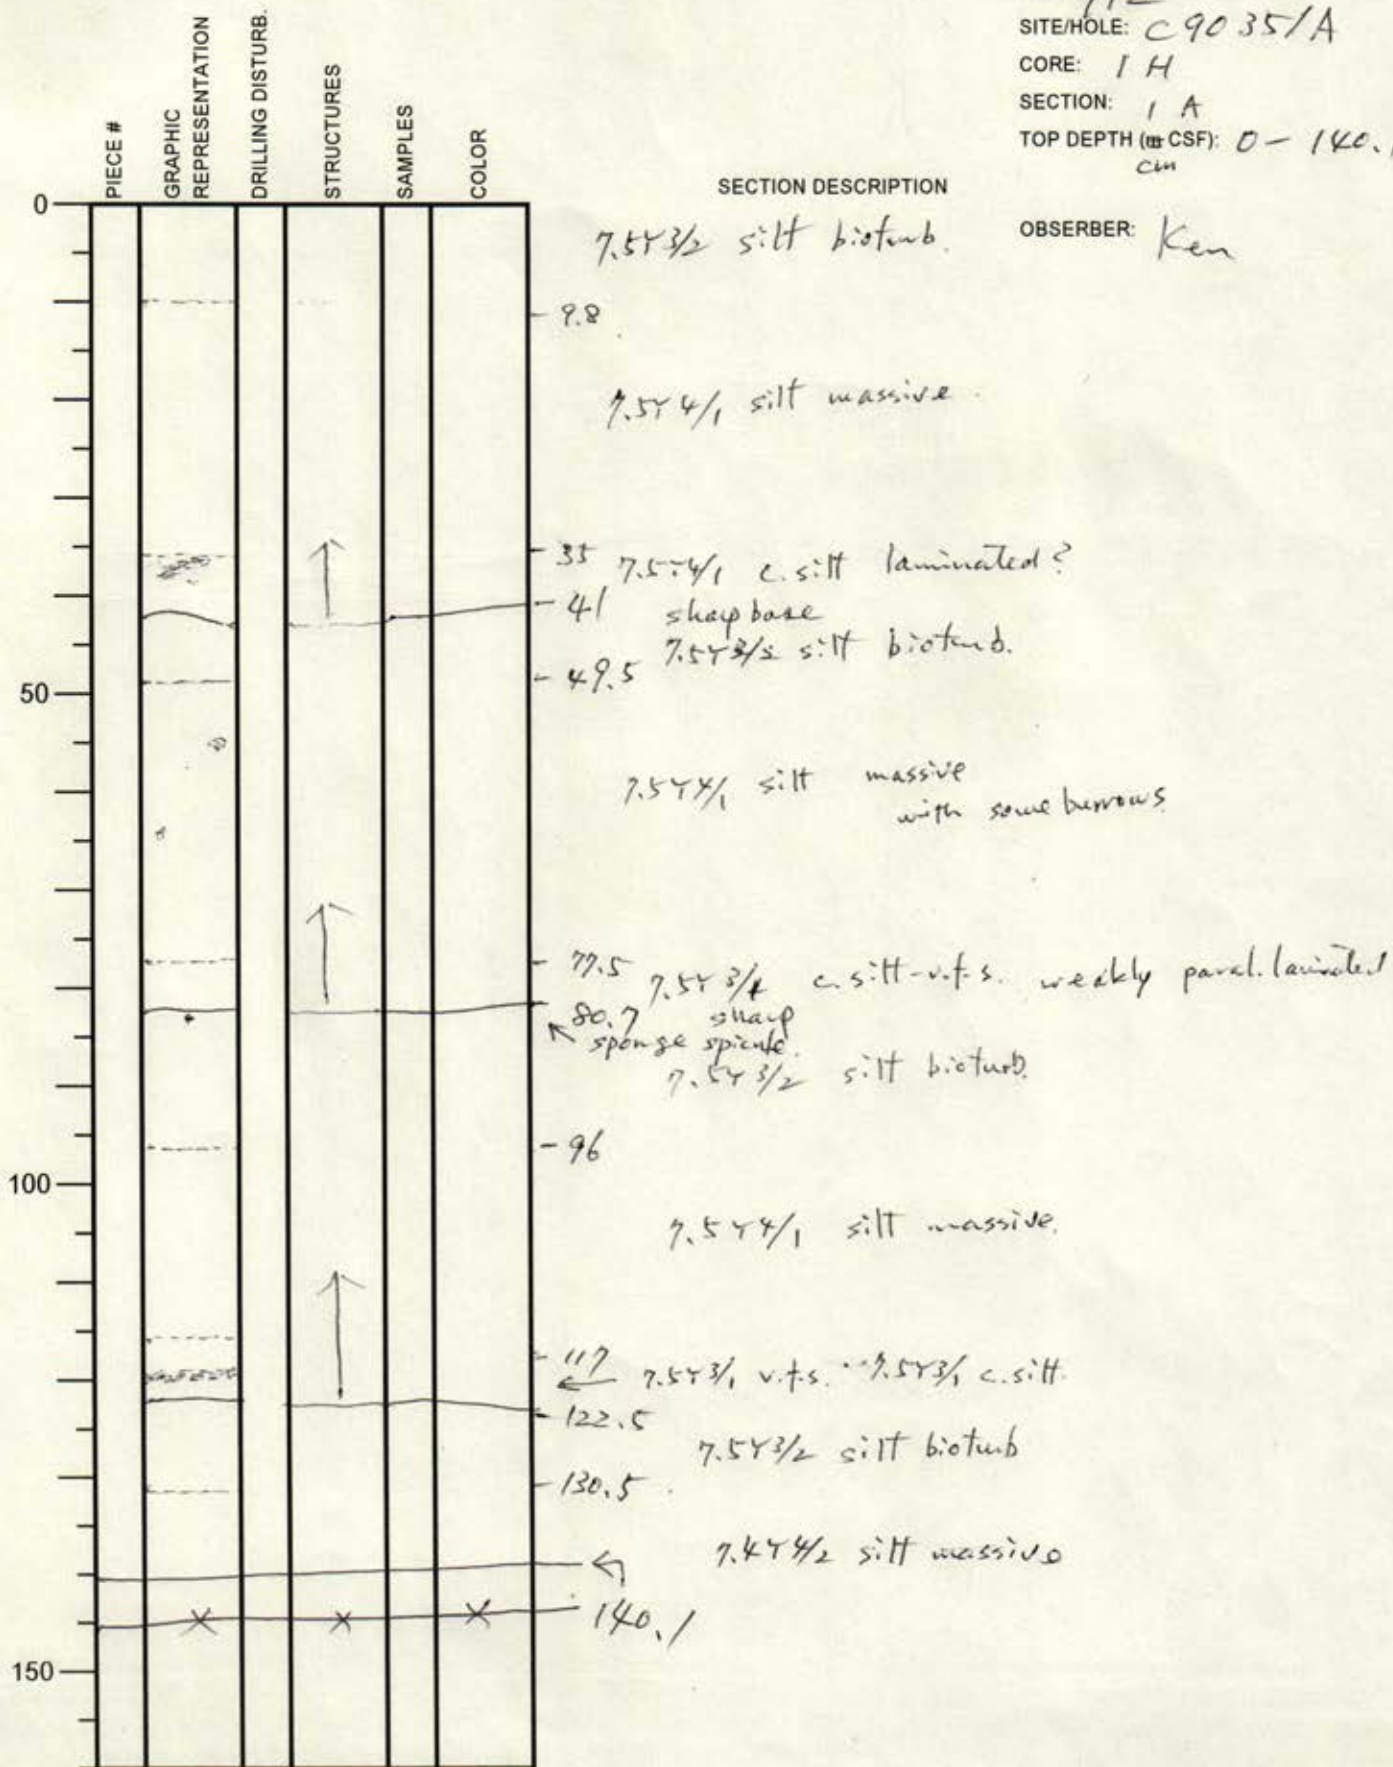 SITE/HOLE: C9035/A
CORE: 1H
SECTION: 1A
TOP DEPTH (m CSF): 0 - 140.1
cm
OBSERBER: Ken
PIECE #
GRAPHIC REPRESENTATION
DRILLING DISTURB.
STRUCTURES
SAMPLES
COLOR
SECTION DESCRIPTION
0
7.5Y3/2 silt bioturb.
9.8
7.5Y4/1 silt massive.
35 7.5Y4/1 c. silt laminated?
41 sharp base
7.5Y3/2 silt bioturb.
49.5
50
7.5Y4/1 silt massive
with some burrows
77.5 7.5Y3/ c. silt-v.f.s. weakly paral. laminated
80.7 sharp
sponge spicule.
7.5Y3/2 silt bioturb.
96
100
7.5Y4/1 silt massive.
117 7.5Y3/1 v.f.s. 7.5Y3/1 c. silt.
122.5
7.5Y3/2 silt bioturb
130.5
7.4Y4/2 silt massive
140.1
150